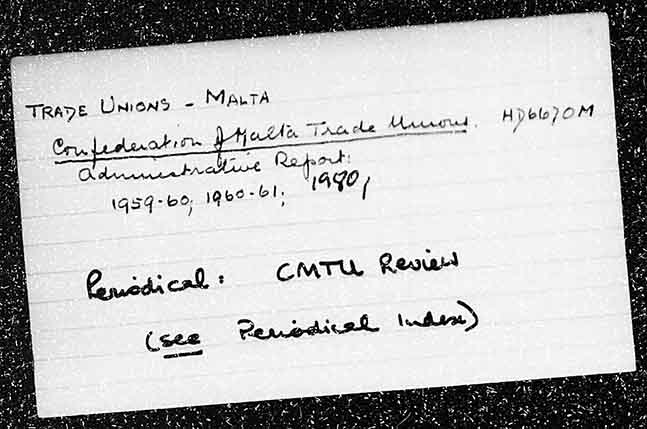 TRADE UNIONS - MALTA
Confederation of Malta Trade Unions. HD6670M
Administrative Report:
1959-60; 1960-61; 1980,
Periodical: CMTU Review
(see Periodical Index)